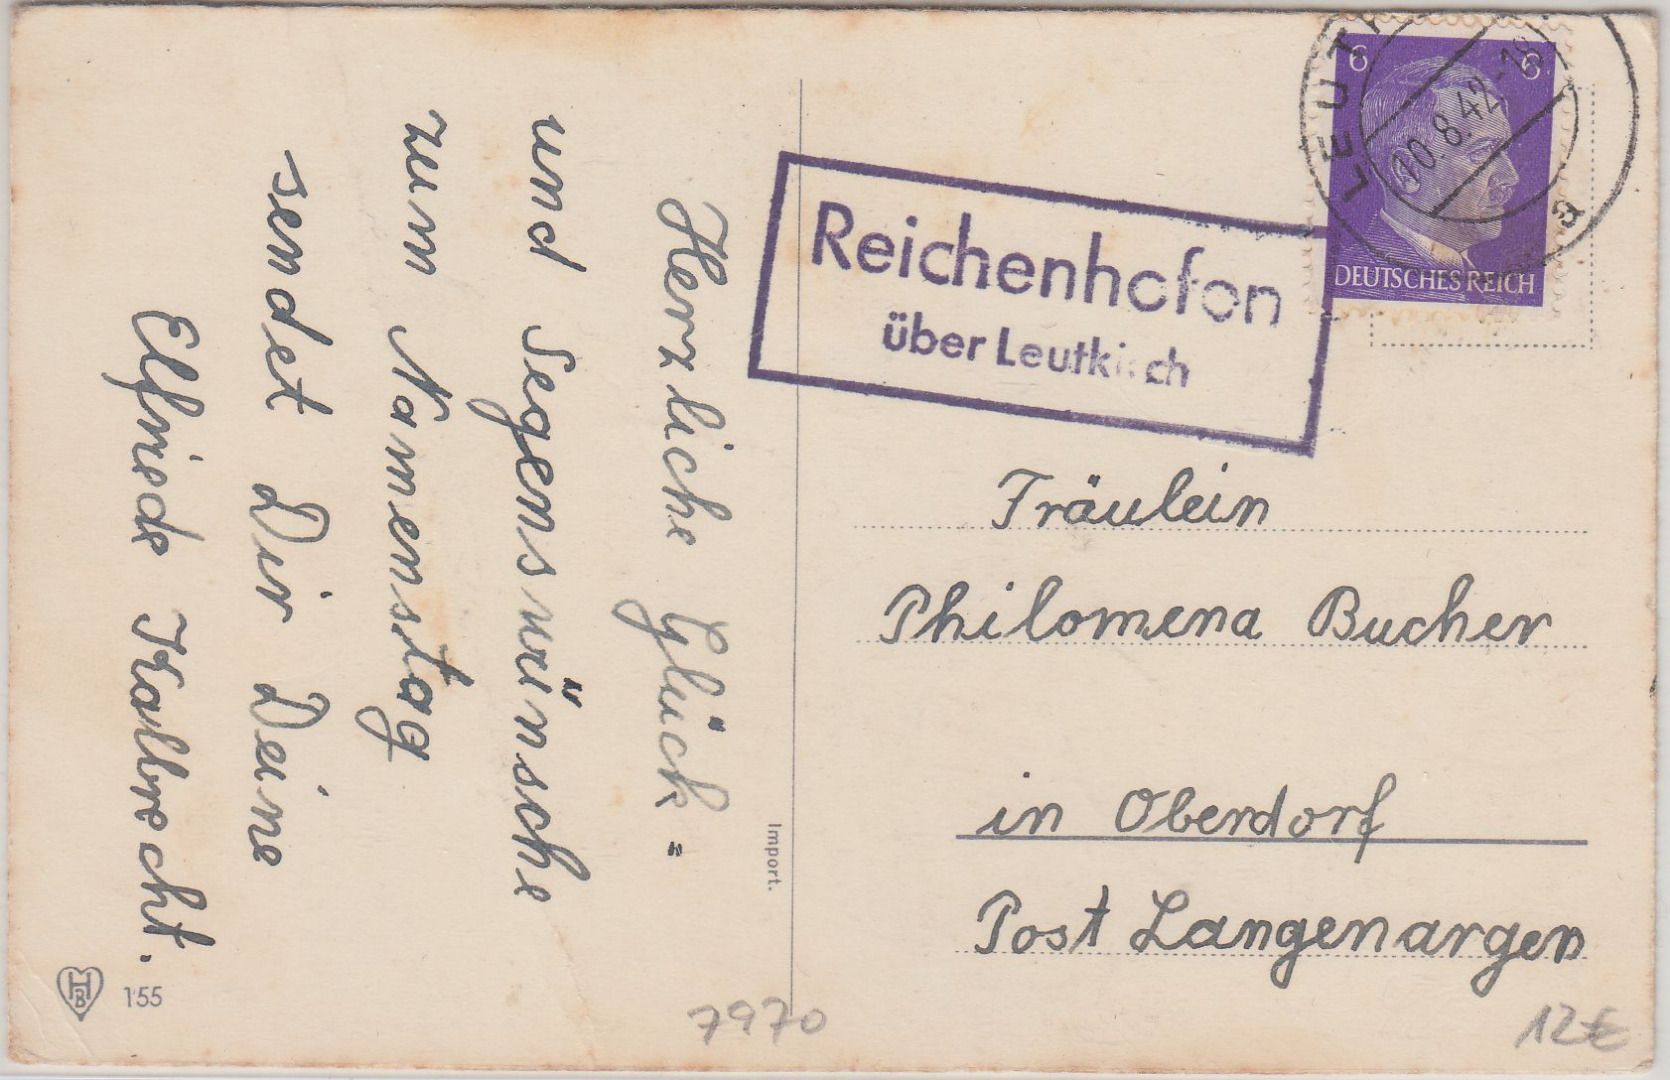 Herzliche Glück=
und Segenswünsche
zum Namenstag
sendet Dir Deine
Elfriede Kalbrecht.
HB 155
Import.
7970
6 6
DEUTSCHES REICH
LEUTK
10.8.42-18
a
Reichenhofen
über Leutkirch
Fräulein
Philomena Bucher
in Oberdorf
Post Langenargen
12€